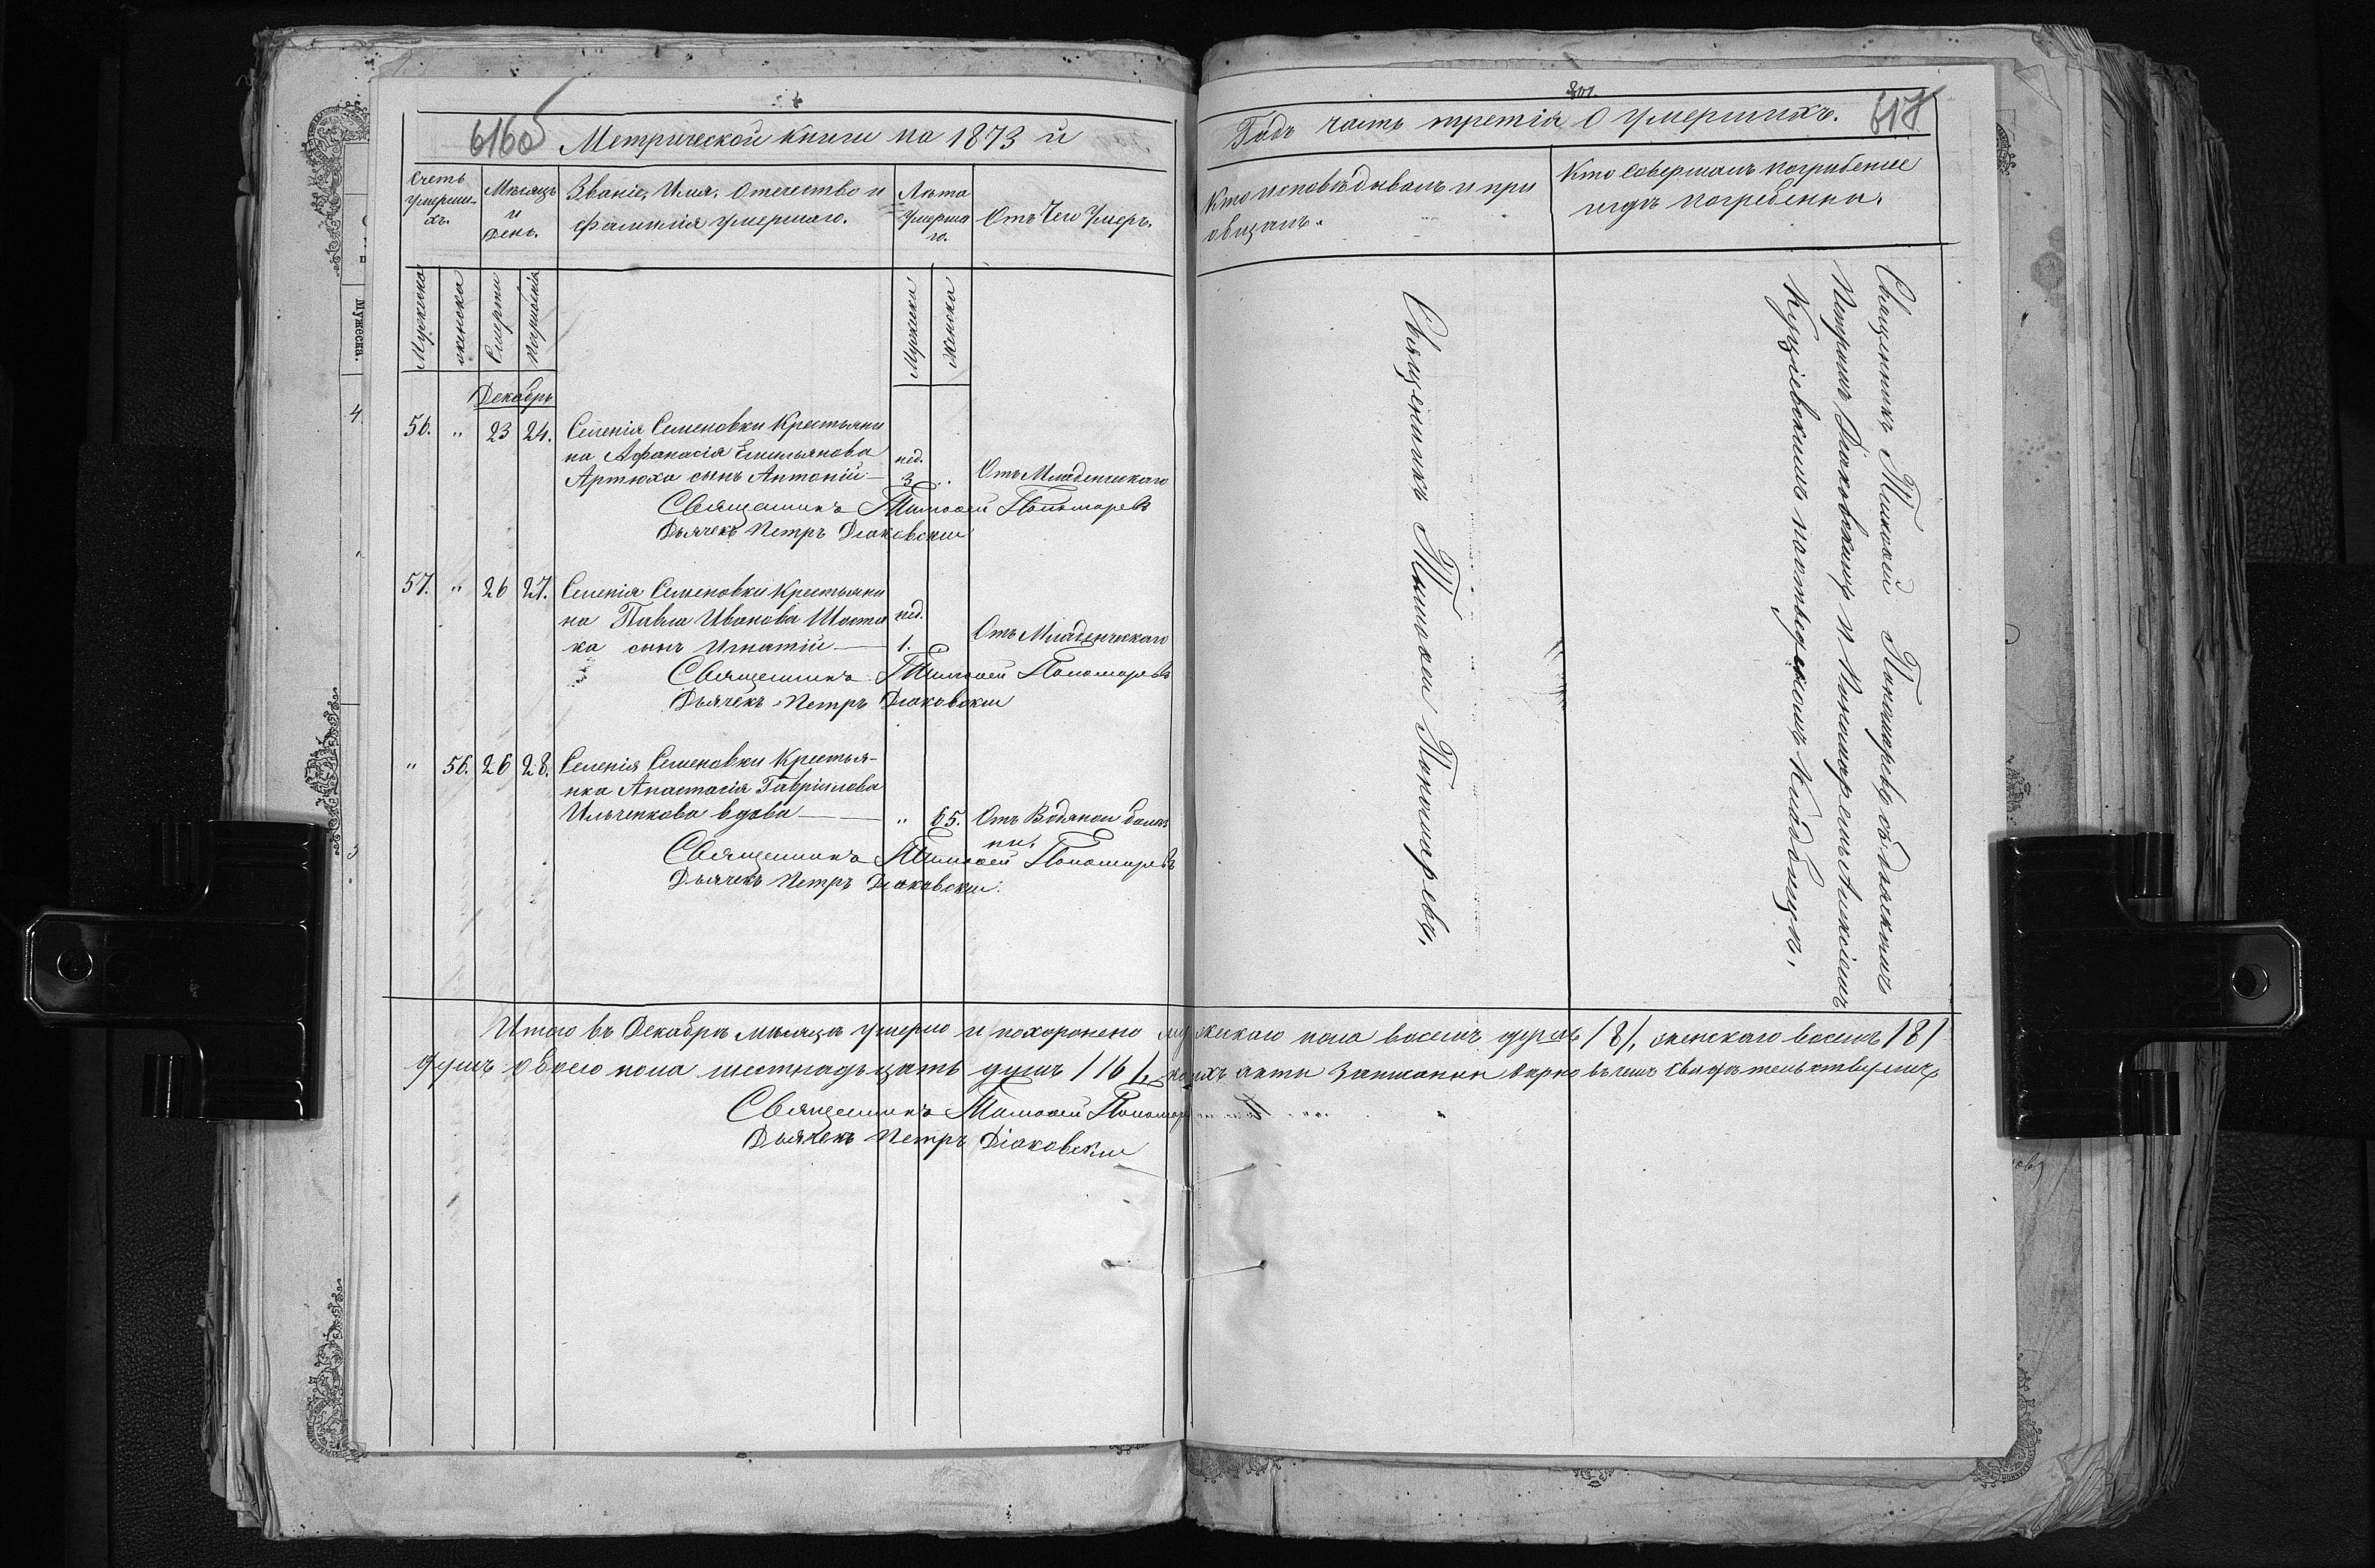 616об
Метрической книги на 1873 й
Счетъ умерши-хъ.
Мѣсяцъ и День.
Званіе, Имя, Отечество и фамилія умершаго.
Лѣта умершаго.
Отъ чего умеръ.
Мужеска
женска
Смерти
Погребенія
Мужеска
Женска
Декабрь
56. " 23 24. Селенія Семеновки Крестьяни
на Афанасія Емильянова
нед.
Артюха сынъ Антоній 3 " Отъ Младенческаго
Священникъ Тимофей Пономаревъ
Дьячекъ Петръ Діаковскій
57. " 26 27. Селенія Семеновки Крестьяни
на Павла Иванова Шоста нед.
ка сынъ Игнатій 1. " Отъ Младенческаго
Священникъ Тимофей Пономаревъ
Дьячекъ Петръ Діаковскій
" 56. 26 28. Селенія Семеновки Крестья-
нка Анастасія Гавріилова
Ильченкова вдова " 65. Отъ Водяной болѣз
ни.
Священникъ Тимофей Пономаревъ
Дьячекъ Петръ Діаковскій.
801.
Годъ часть третія О умершихъ. 617
Кто исповѣдывалъ и при
общалъ.
Кто совершалъ погребеніе
и гдѣ погребены.
Священникъ Тимофей Пономаревъ.
Священникъ Тимофей Пономаревъ съ дьячкомъ
Петромъ Діаковскимъ и Пономаремъ Алексіемъ
на кладбищѣ.
Итого въ Декабрѣ мѣсяцѣ умерло и похоронено мужескаго пола восемь душъ /8/, женскаго восемь /8/
душъ обоего пола шестнадцать душъ /16/, коихъ акты записаны вѣрно въ чемъ свидѣтельствуемъ
Священникъ Тимофей Пономаревъ
Дьячекъ Петръ Діаковскій
Мужеска.
4